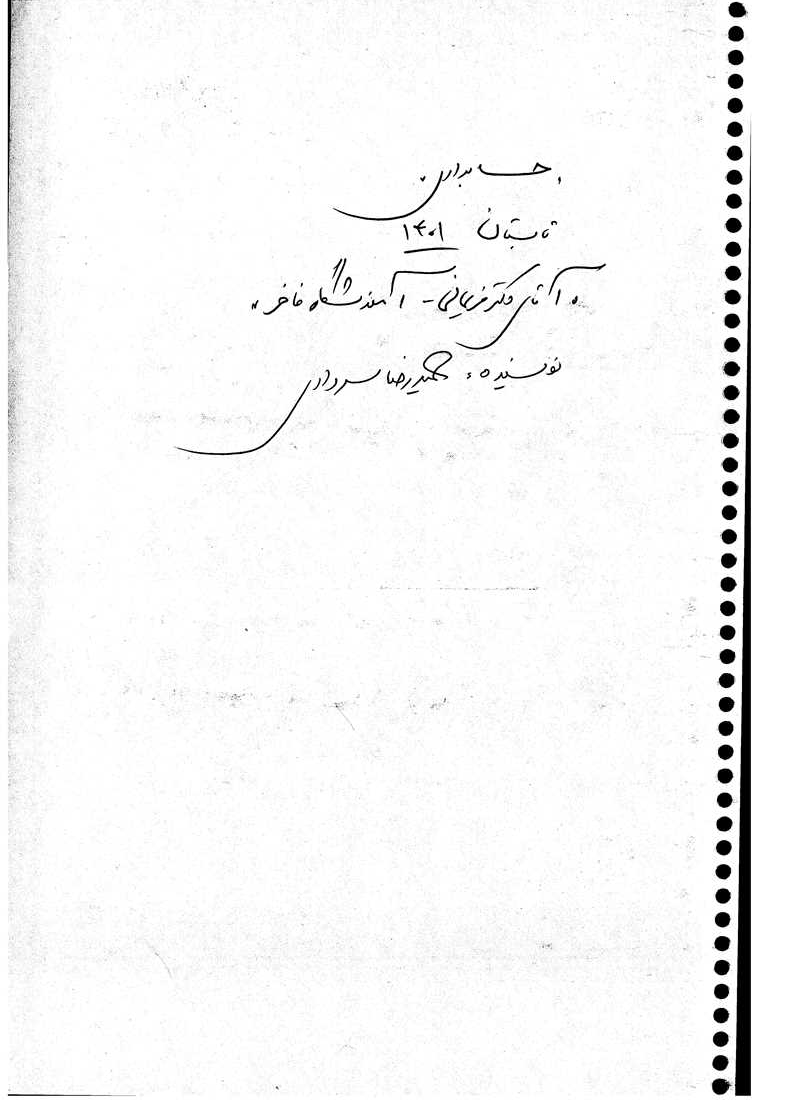 حسابداری
تابستان ۱۴۰۱
" آقای دکتر فریمانی - آموزشگاه فاخر "
نویسنده : حمیدرضا سرداری